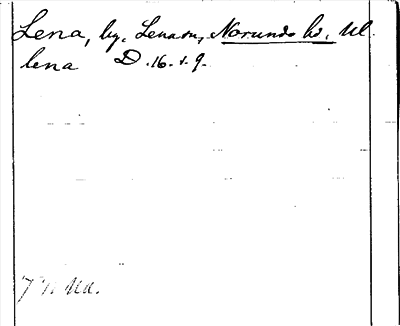 Lena, by. Lenaon, Norunds hd, Ul.
lena D. 16. s. 9.